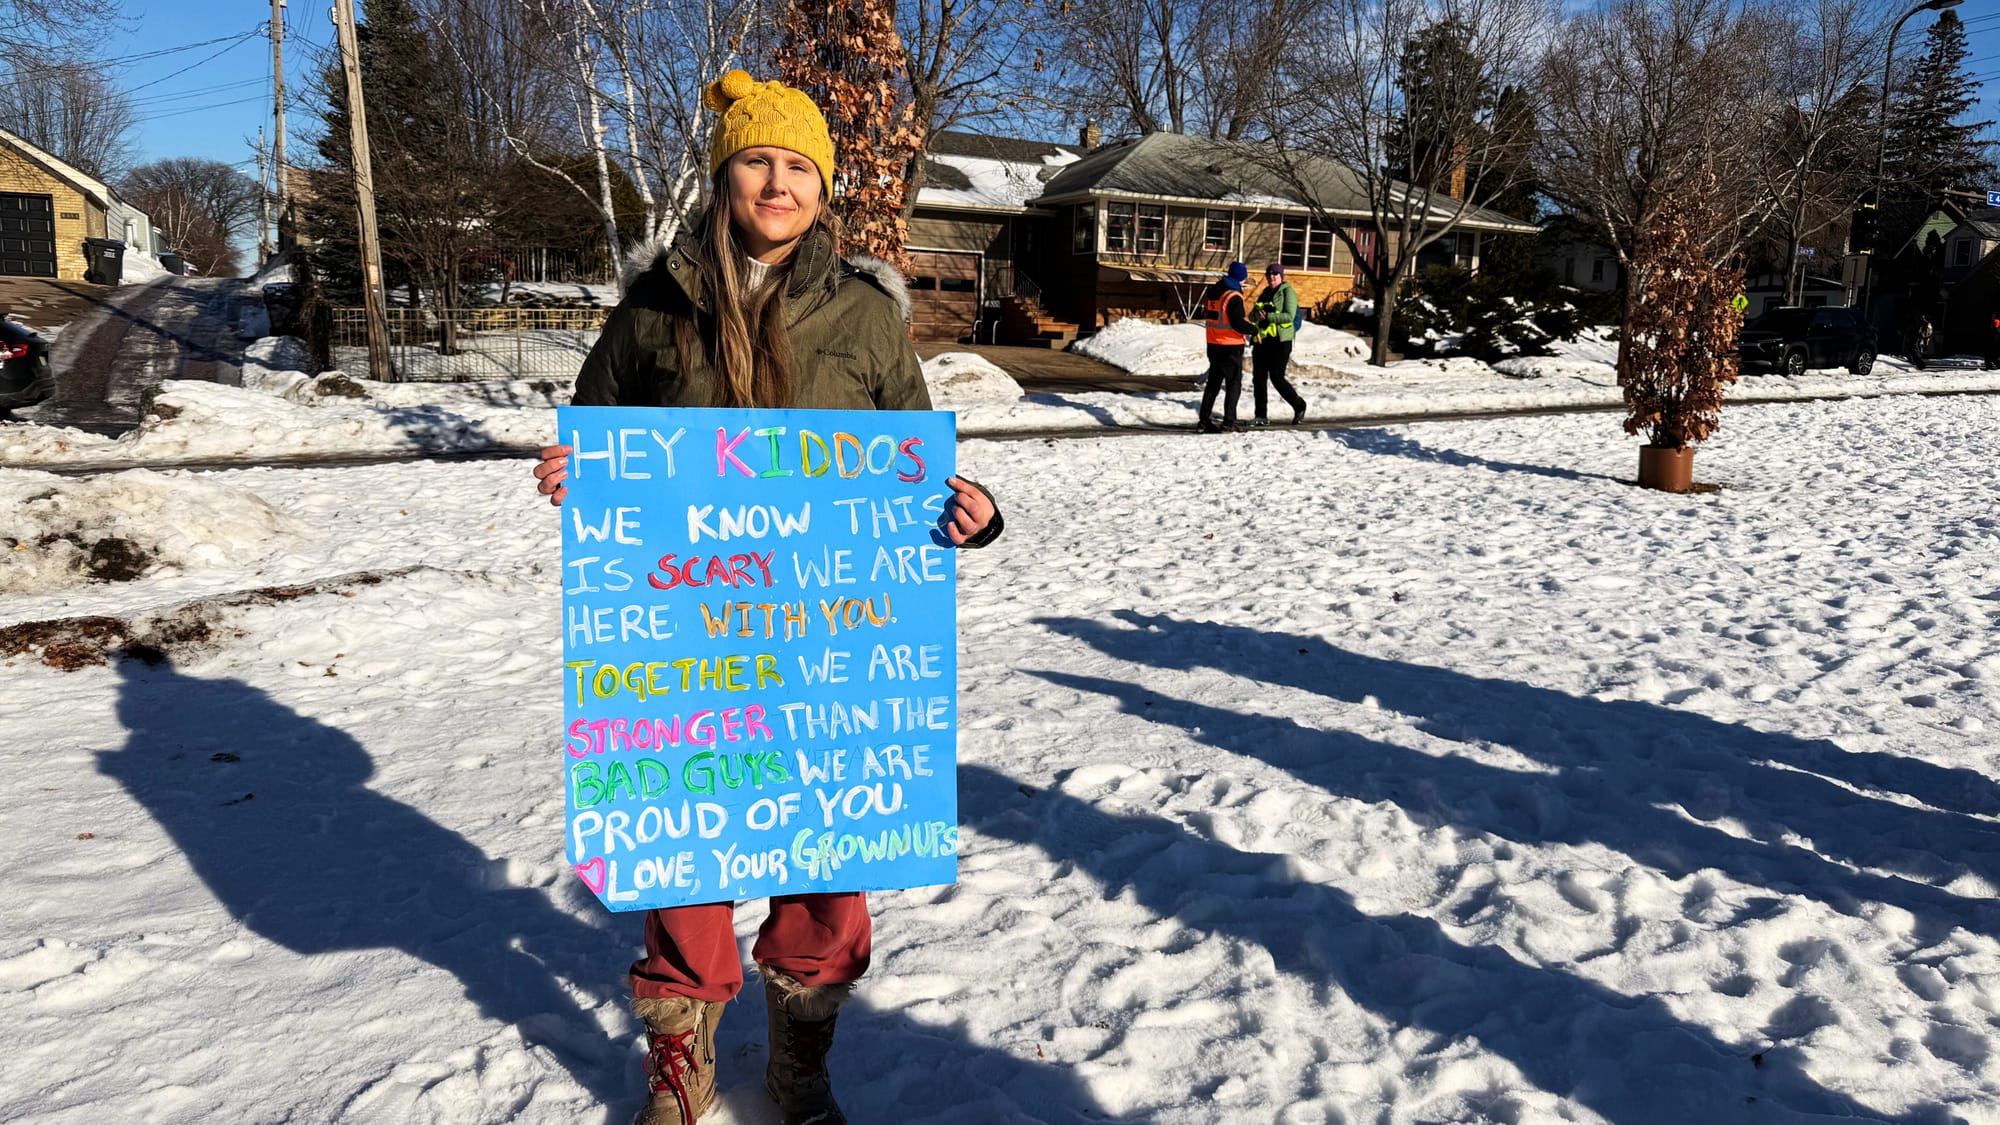 HEY KIDDOS
WE KNOW THIS
IS SCARY. WE ARE
HERE WITH YOU.
TOGETHER WE ARE
STRONGER THAN THE
BAD GUYS. WE ARE
PROUD OF YOU.
LOVE, YOUR GROWNUPS
Columbia